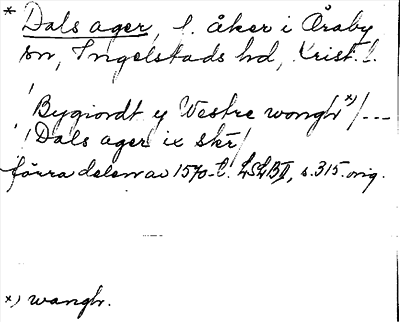 * Dals ager, f. åker i Öraby
sn, Ingelstads hd, Krist. l.
Bygiordt y Westre wongh x) / ---
/ Dals ager ix skr /
förra delen av 1570-t. LSLB II, s. 315. orig.
x) wangh.